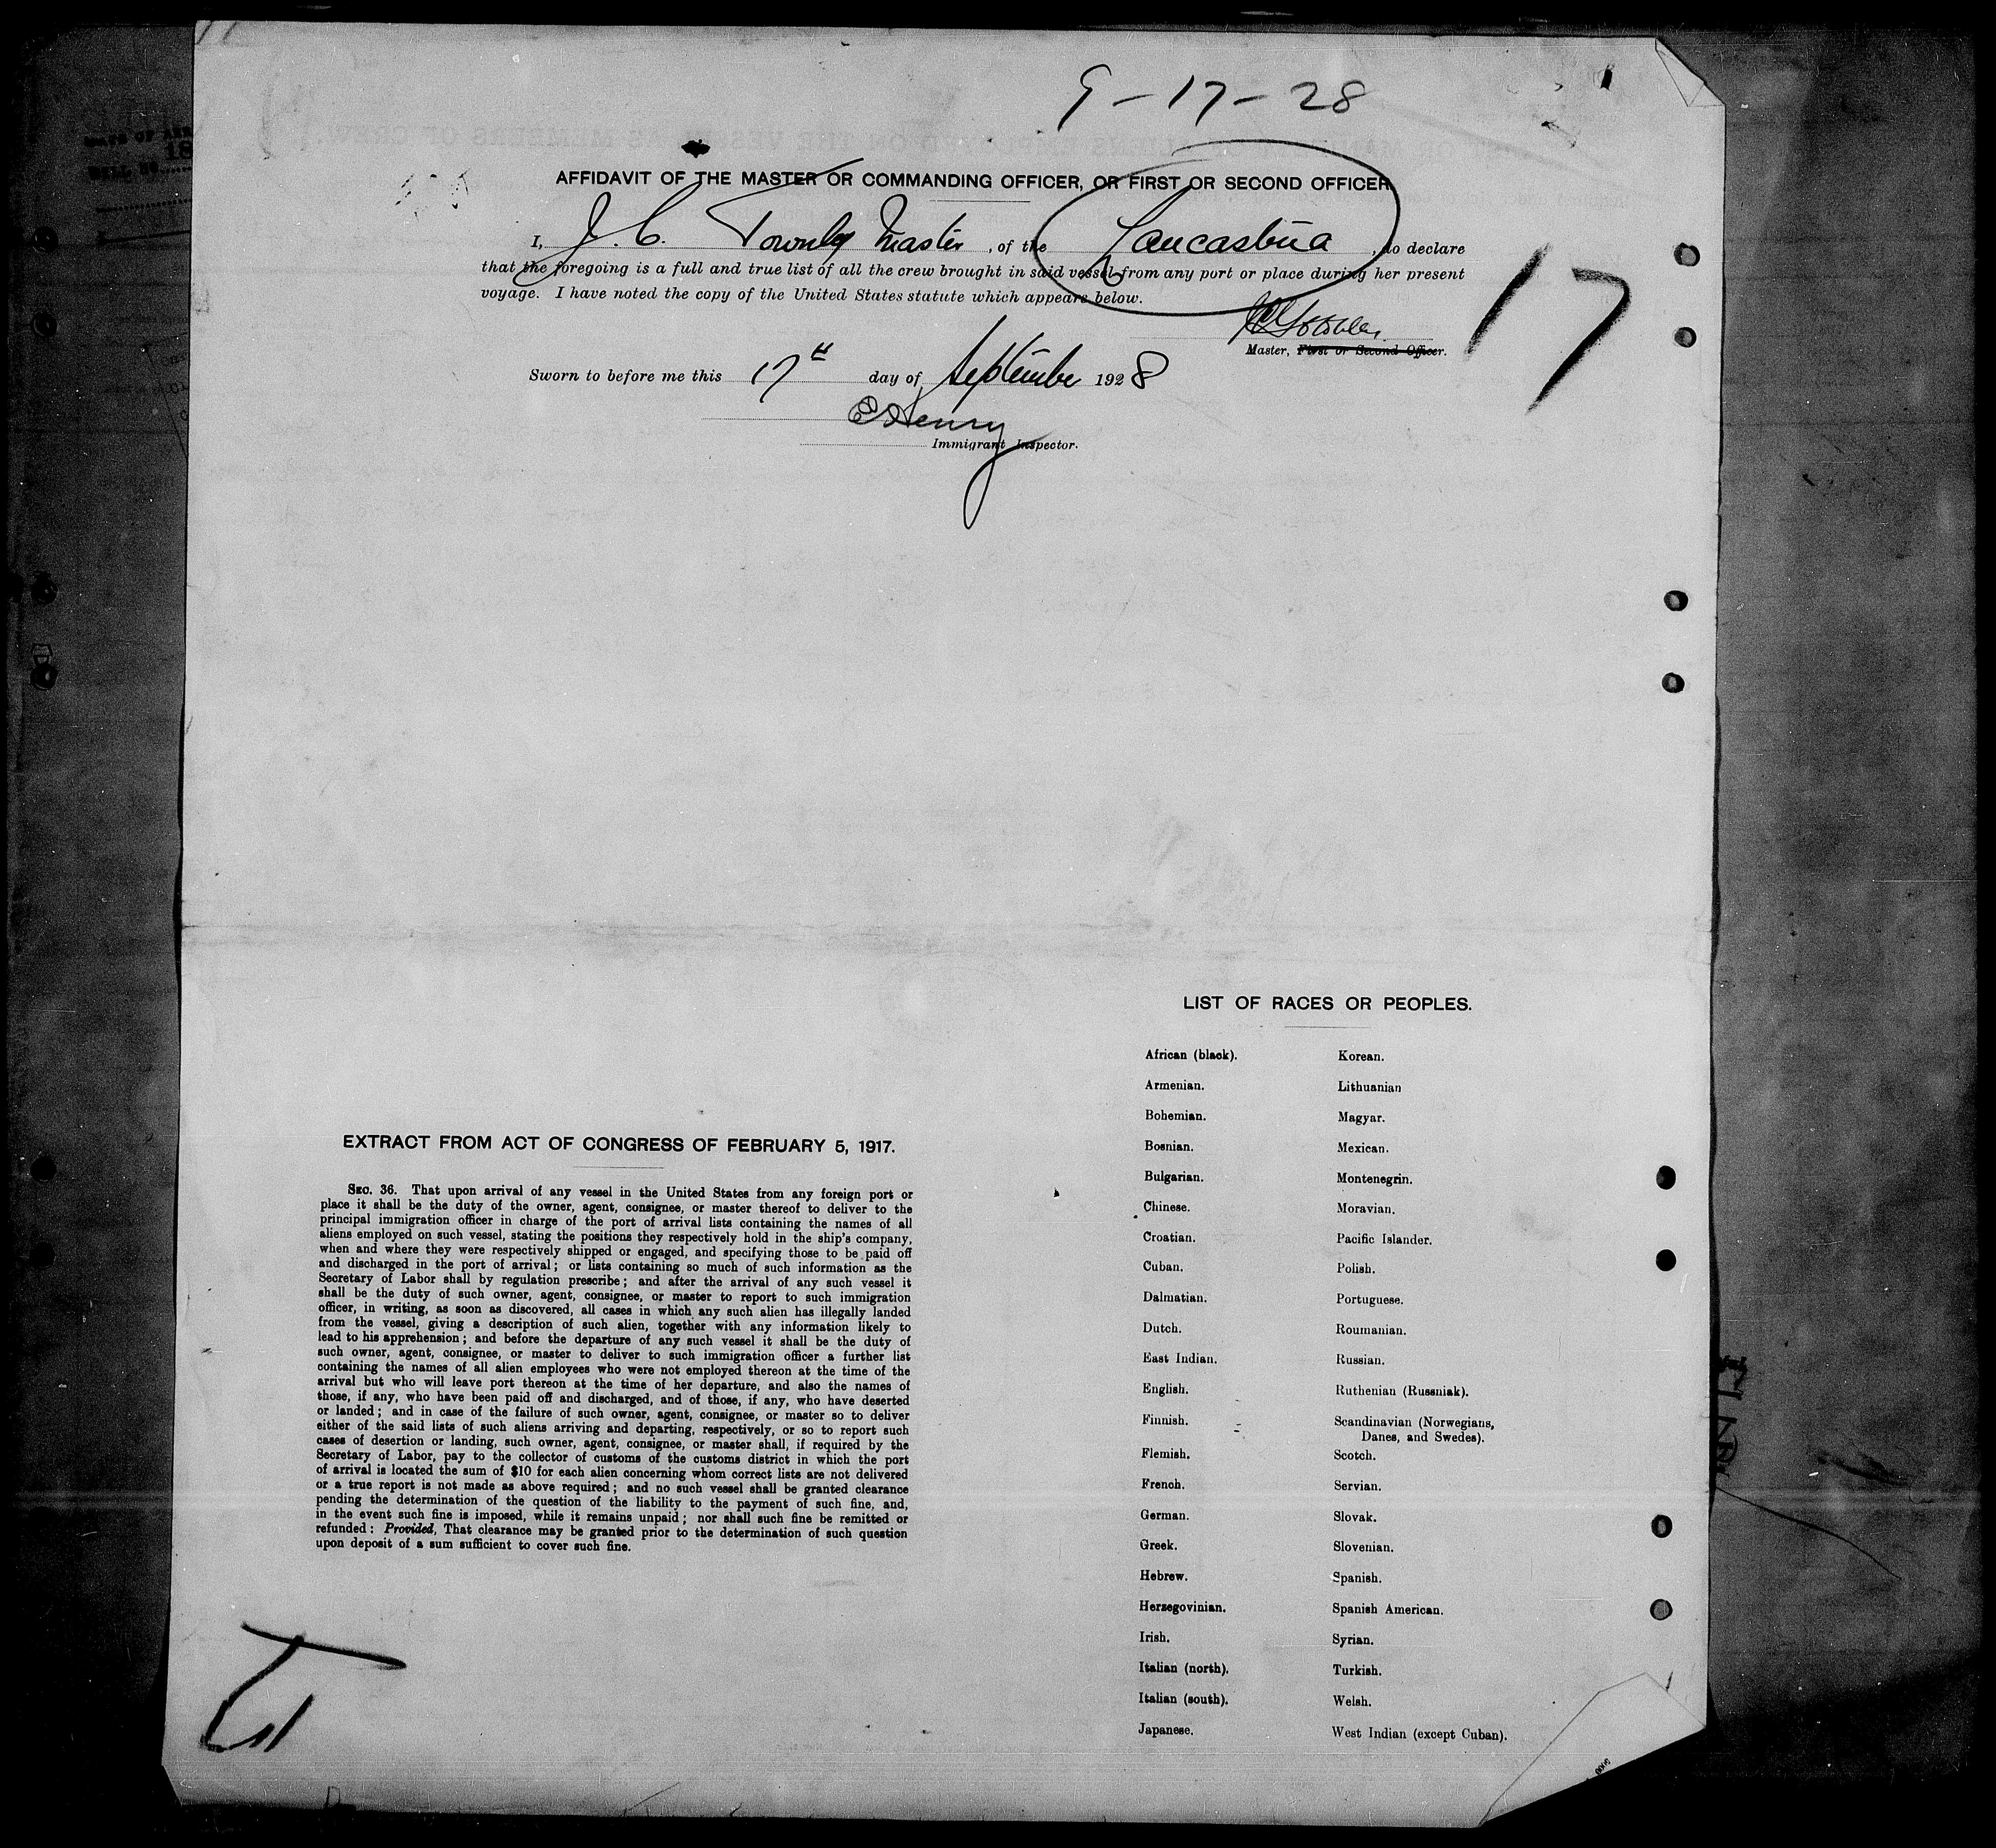 9-17-28
AFFIDAVIT OF THE MASTER OR COMMANDING OFFICER, OR FIRST OR SECOND OFFICER
I, J. C. Townley Master, of the Lancastria, do declare
that the foregoing is a full and true list of all the crew brought in said vessel from any port or place during her present
voyage. I have noted the copy of the United States statute which appears below.
17
Master, First or Second Officer.
Sworn to before me this 17th day of September 1928
E Henry
Immigrant Inspector.
LIST OF RACES OR PEOPLES.
African (black). Korean.
Armenian. Lithuanian
Bohemian. Magyar.
Bosnian. Mexican.
Bulgarian. Montenegrin.
Chinese. Moravian.
Croatian. Pacific Islander.
Cuban. Polish.
Dalmatian. Portuguese.
Dutch. Roumanian.
East Indian. Russian.
English. Ruthenian (Russniak).
Finnish. Scandinavian (Norwegians,
Danes, and Swedes).
Flemish. Scotch.
French. Servian.
German. Slovak.
Greek. Slovenian.
Hebrew. Spanish.
Herzegovinian. Spanish American.
Irish. Syrian.
Italian (north). Turkish.
Italian (south). Welsh.
Japanese. West Indian (except Cuban).
EXTRACT FROM ACT OF CONGRESS OF FEBRUARY 5, 1917.
SEC. 36. That upon arrival of any vessel in the United States from any foreign port or
place it shall be the duty of the owner, agent, consignee, or master thereof to deliver to the
principal immigration officer in charge of the port of arrival lists containing the names of all
aliens employed on such vessel, stating the positions they respectively hold in the ship's company,
when and where they were respectively shipped or engaged, and specifying those to be paid off
and discharged in the port of arrival; or lists containing so much of such information as the
Secretary of Labor shall by regulation prescribe; and after the arrival of any such vessel it
shall be the duty of such owner, agent, consignee, or master to report to such immigration
officer, in writing, as soon as discovered, all cases in which any such alien has illegally landed
from the vessel, giving a description of such alien, together with any information likely to
lead to his apprehension; and before the departure of any such vessel it shall be the duty of
such owner, agent, consignee, or master to deliver to such immigration officer a further list
containing the names of all alien employees who were not employed thereon at the time of the
arrival but who will leave port thereon at the time of her departure, and also the names of
those, if any, who have been paid off and discharged, and of those, if any, who have deserted
or landed; and in case of the failure of such owner, agent, consignee, or master so to deliver
either of the said lists of such aliens arriving and departing, respectively, or so to report such
cases of desertion or landing, such owner, agent, consignee, or master shall, if required by the
Secretary of Labor, pay to the collector of customs of the customs district in which the port
of arrival is located the sum of $10 for each alien concerning whom correct lists are not delivered
or a true report is not made as above required; and no such vessel shall be granted clearance
pending the determination of the question of the liability to the payment of such fine, and,
in the event such fine is imposed, while it remains unpaid; nor shall such fine be remitted or
refunded: Provided, That clearance may be granted prior to the determination of such question
upon deposit of a sum sufficient to cover such fine.